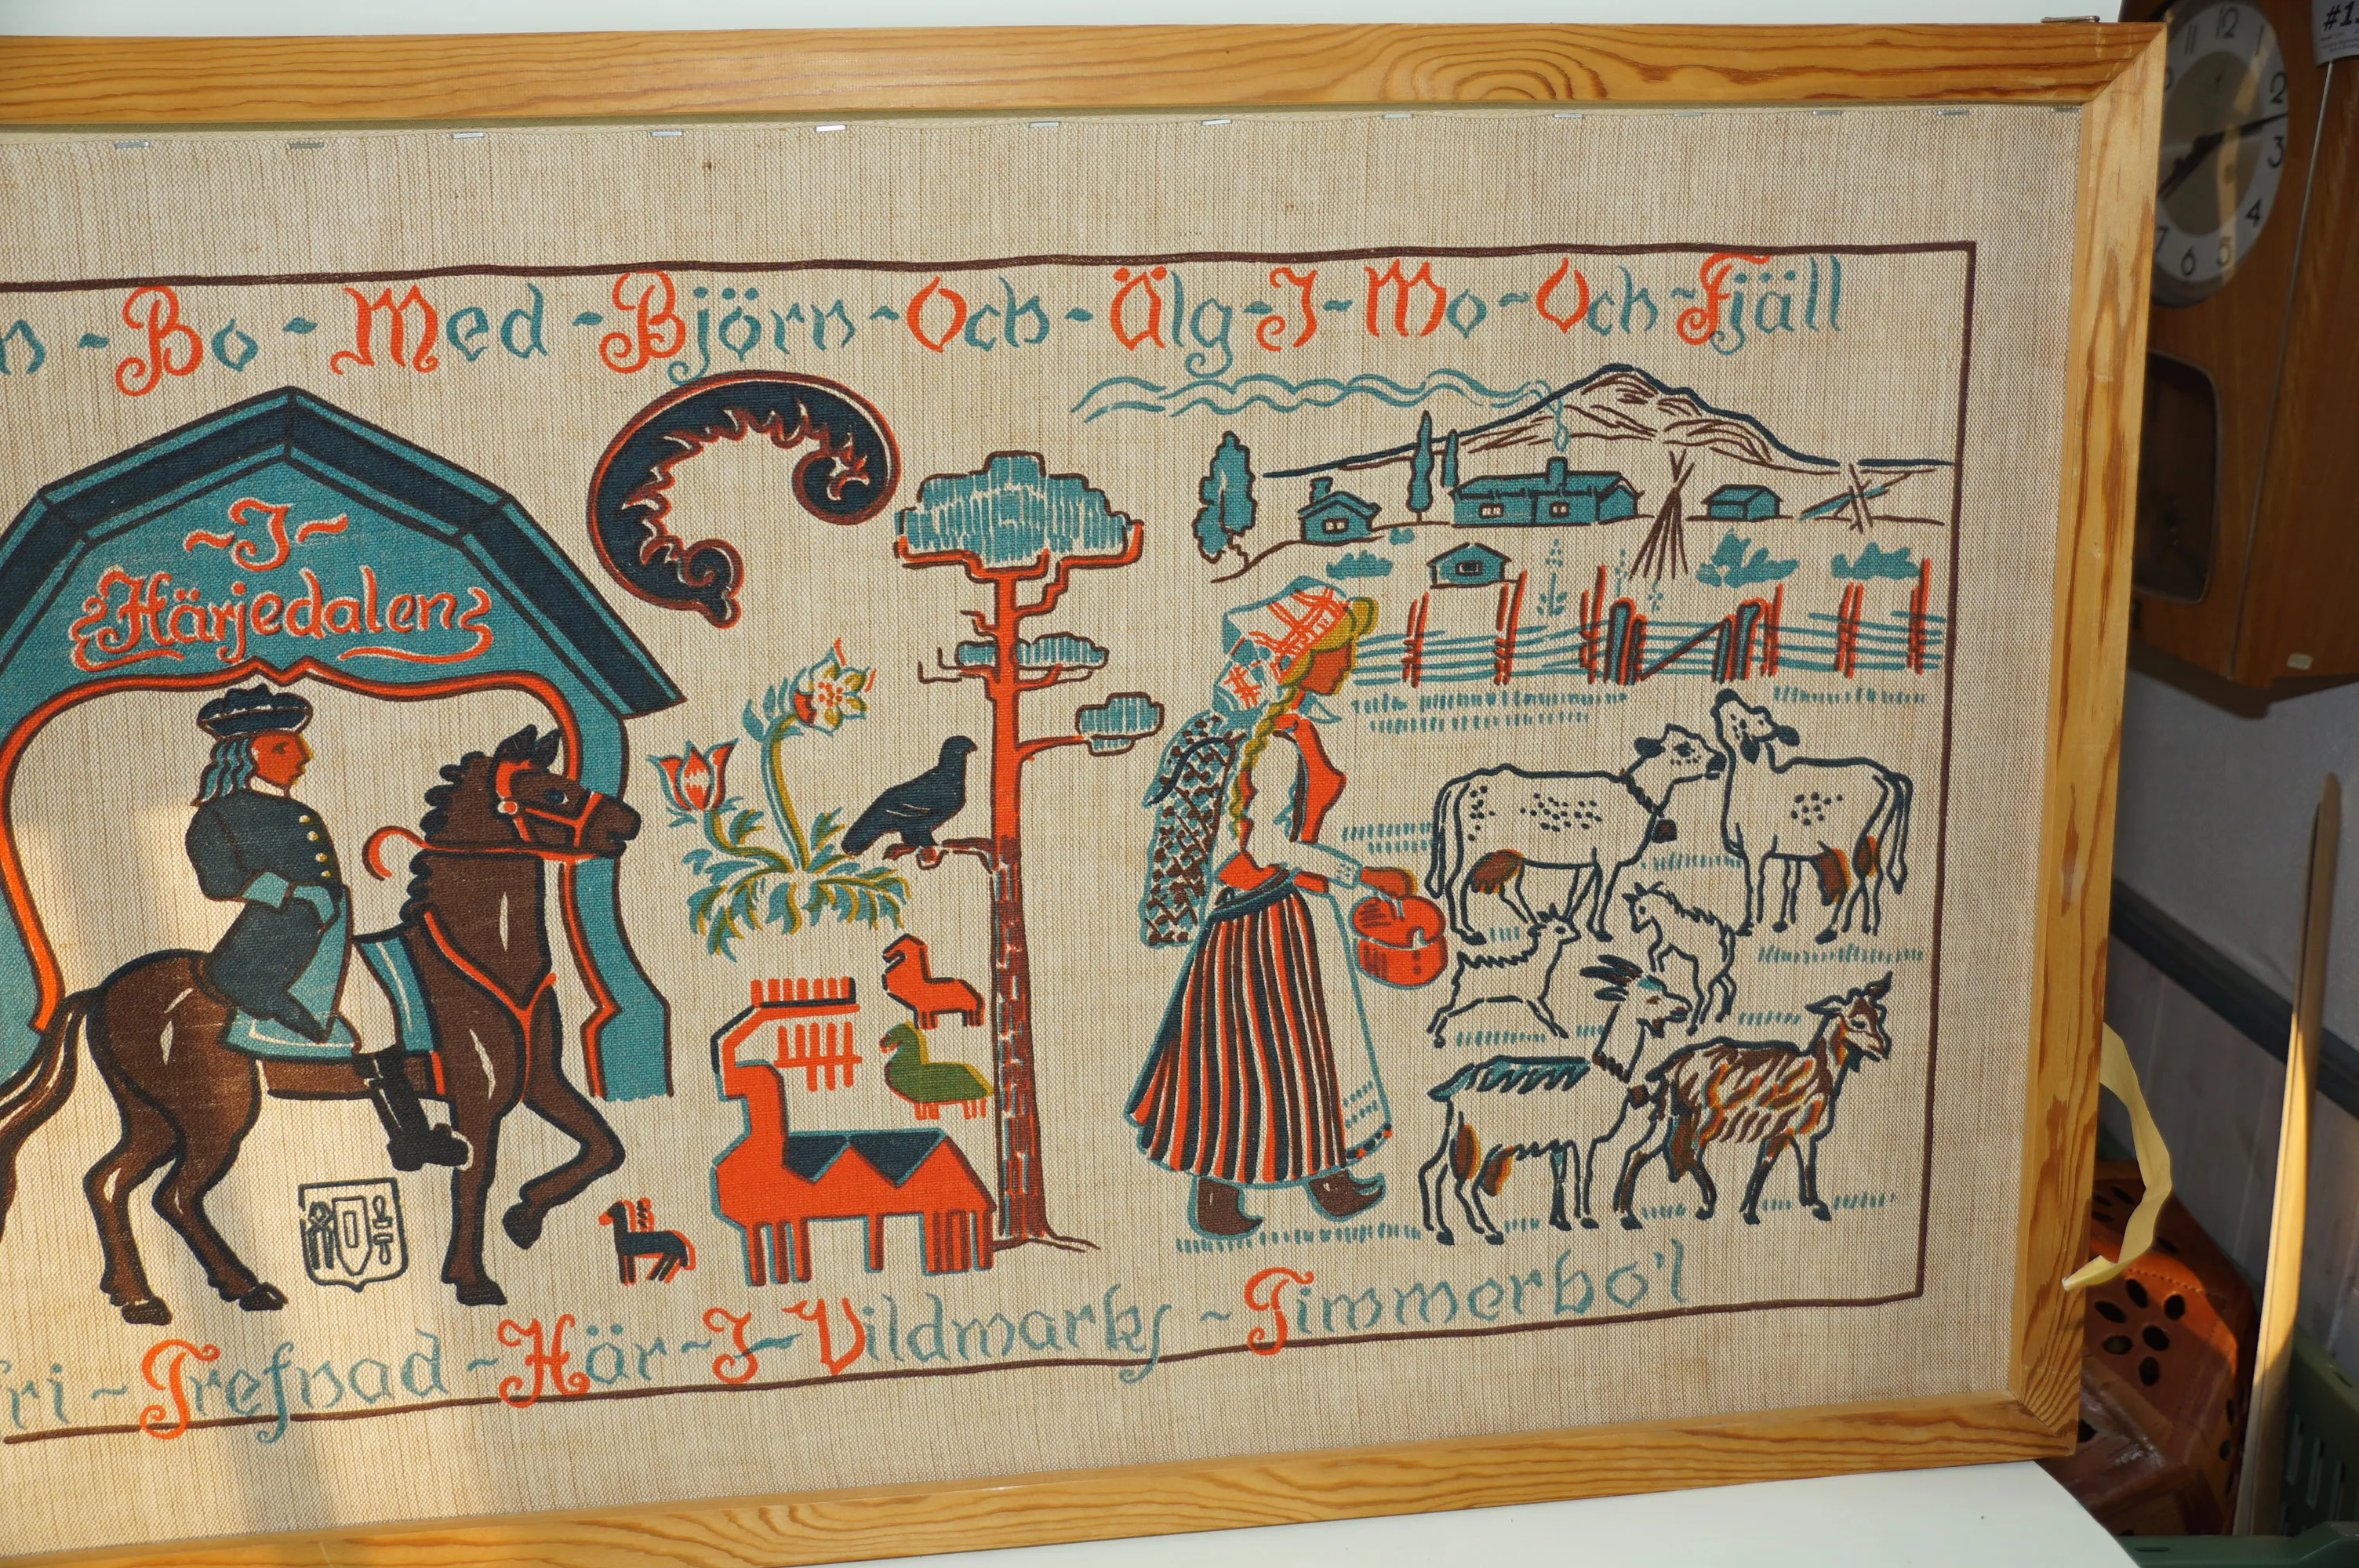 Bo ~ Med ~ Björn ~ Och ~ Älg ~ I ~ Mo ~ Och ~ Fjäll
~ I ~
Härjedalen
~ Trefnad ~ Här ~ I ~ Vildmarks ~ Timmerbo'l
11 12 1
2
3
4
5
6
7